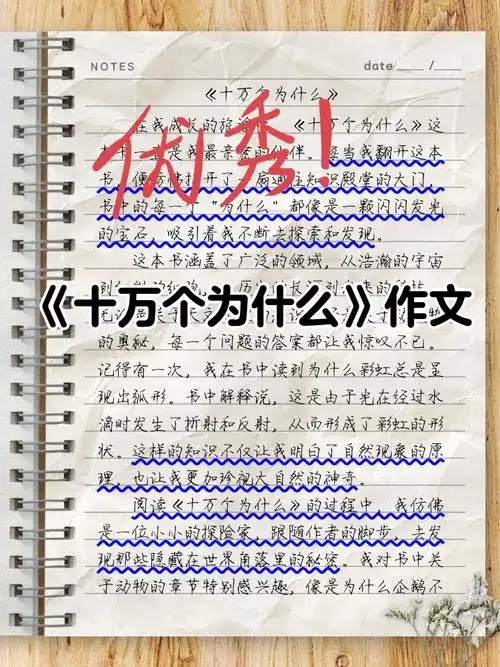 NOTES
date /
《十万个为什么》
在我成长的旅 《十万个为什么》这
是我最亲密的伙伴。每当我翻开这本
书,便仿佛打开了 扇通往知识殿堂的大门,
书中的每一个“为什么”都像是一颗闪闪发光
的宝石,吸引着我不断去探索和发现。
这本书涵盖了广泛的领域,从浩瀚的宇宙
《十万个为什么》作文
的奥秘,每一个问题的答案都让我惊叹不已。
记得有一次,我在书中读到为什么彩虹总是呈
现出弧形。书中解释说,这是由于光在经过水
滴时发生了折射和反射,从而形成了彩虹的形
状。这样的知识不仅让我明白了自然现象的原
理,也让我更加珍视大自然的神奇。
阅读《十万个为什么》的过程中,我仿佛
是一位小小的探险家,跟随作者的脚步,去发
现那些隐藏在世界角落里的秘密。我对书中关
于动物的章节特别感兴趣,像是为什么企鹅不
优秀!